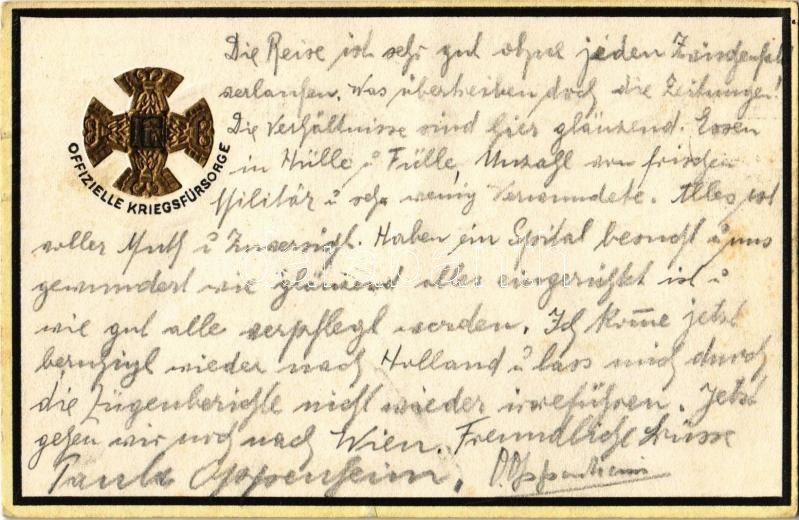 Die Reise ist sehr gut ohne jeden Zwischenfall
verlaufen. Was übertreiben doch die Zeitungen!
Die Verhältnisse sind hier glänzend. Essen
in Hülle u Fülle, Unzahl von frischen
Militär u sehr wenig Verwundete. Alles ist
OFFIZIELLE KRIEGSFÜRSORGE
voller Muth u Zuversicht. Haben ein Spital besucht u uns
gewundert wie glänzend alles eingerichtet ist u
wie gut alle verpflegt werden. Ich kom̄e jetzt
beruhigt wieder nach Holland u lass mich durch
die Lügenberichte nicht wieder irreführen. Jetzt
gehen wir noch nach Wien. Freundliche Grüsse
Paula Oppenheim. Oppenheim